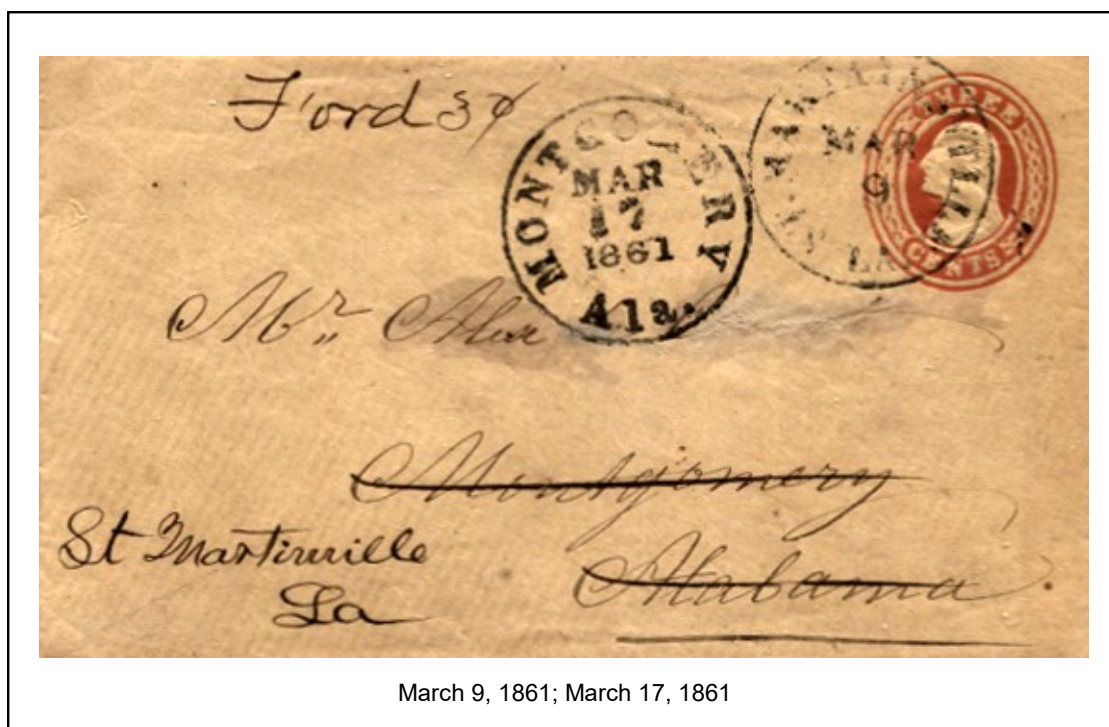 Ford 3¢
MONTGOMERY
MAR
17
1861
Ala.
MAR
9
LA
THREE
CENTS
Mr. Alex
Montgomery
Alabama.
St Martinville
La
March 9, 1861; March 17, 1861